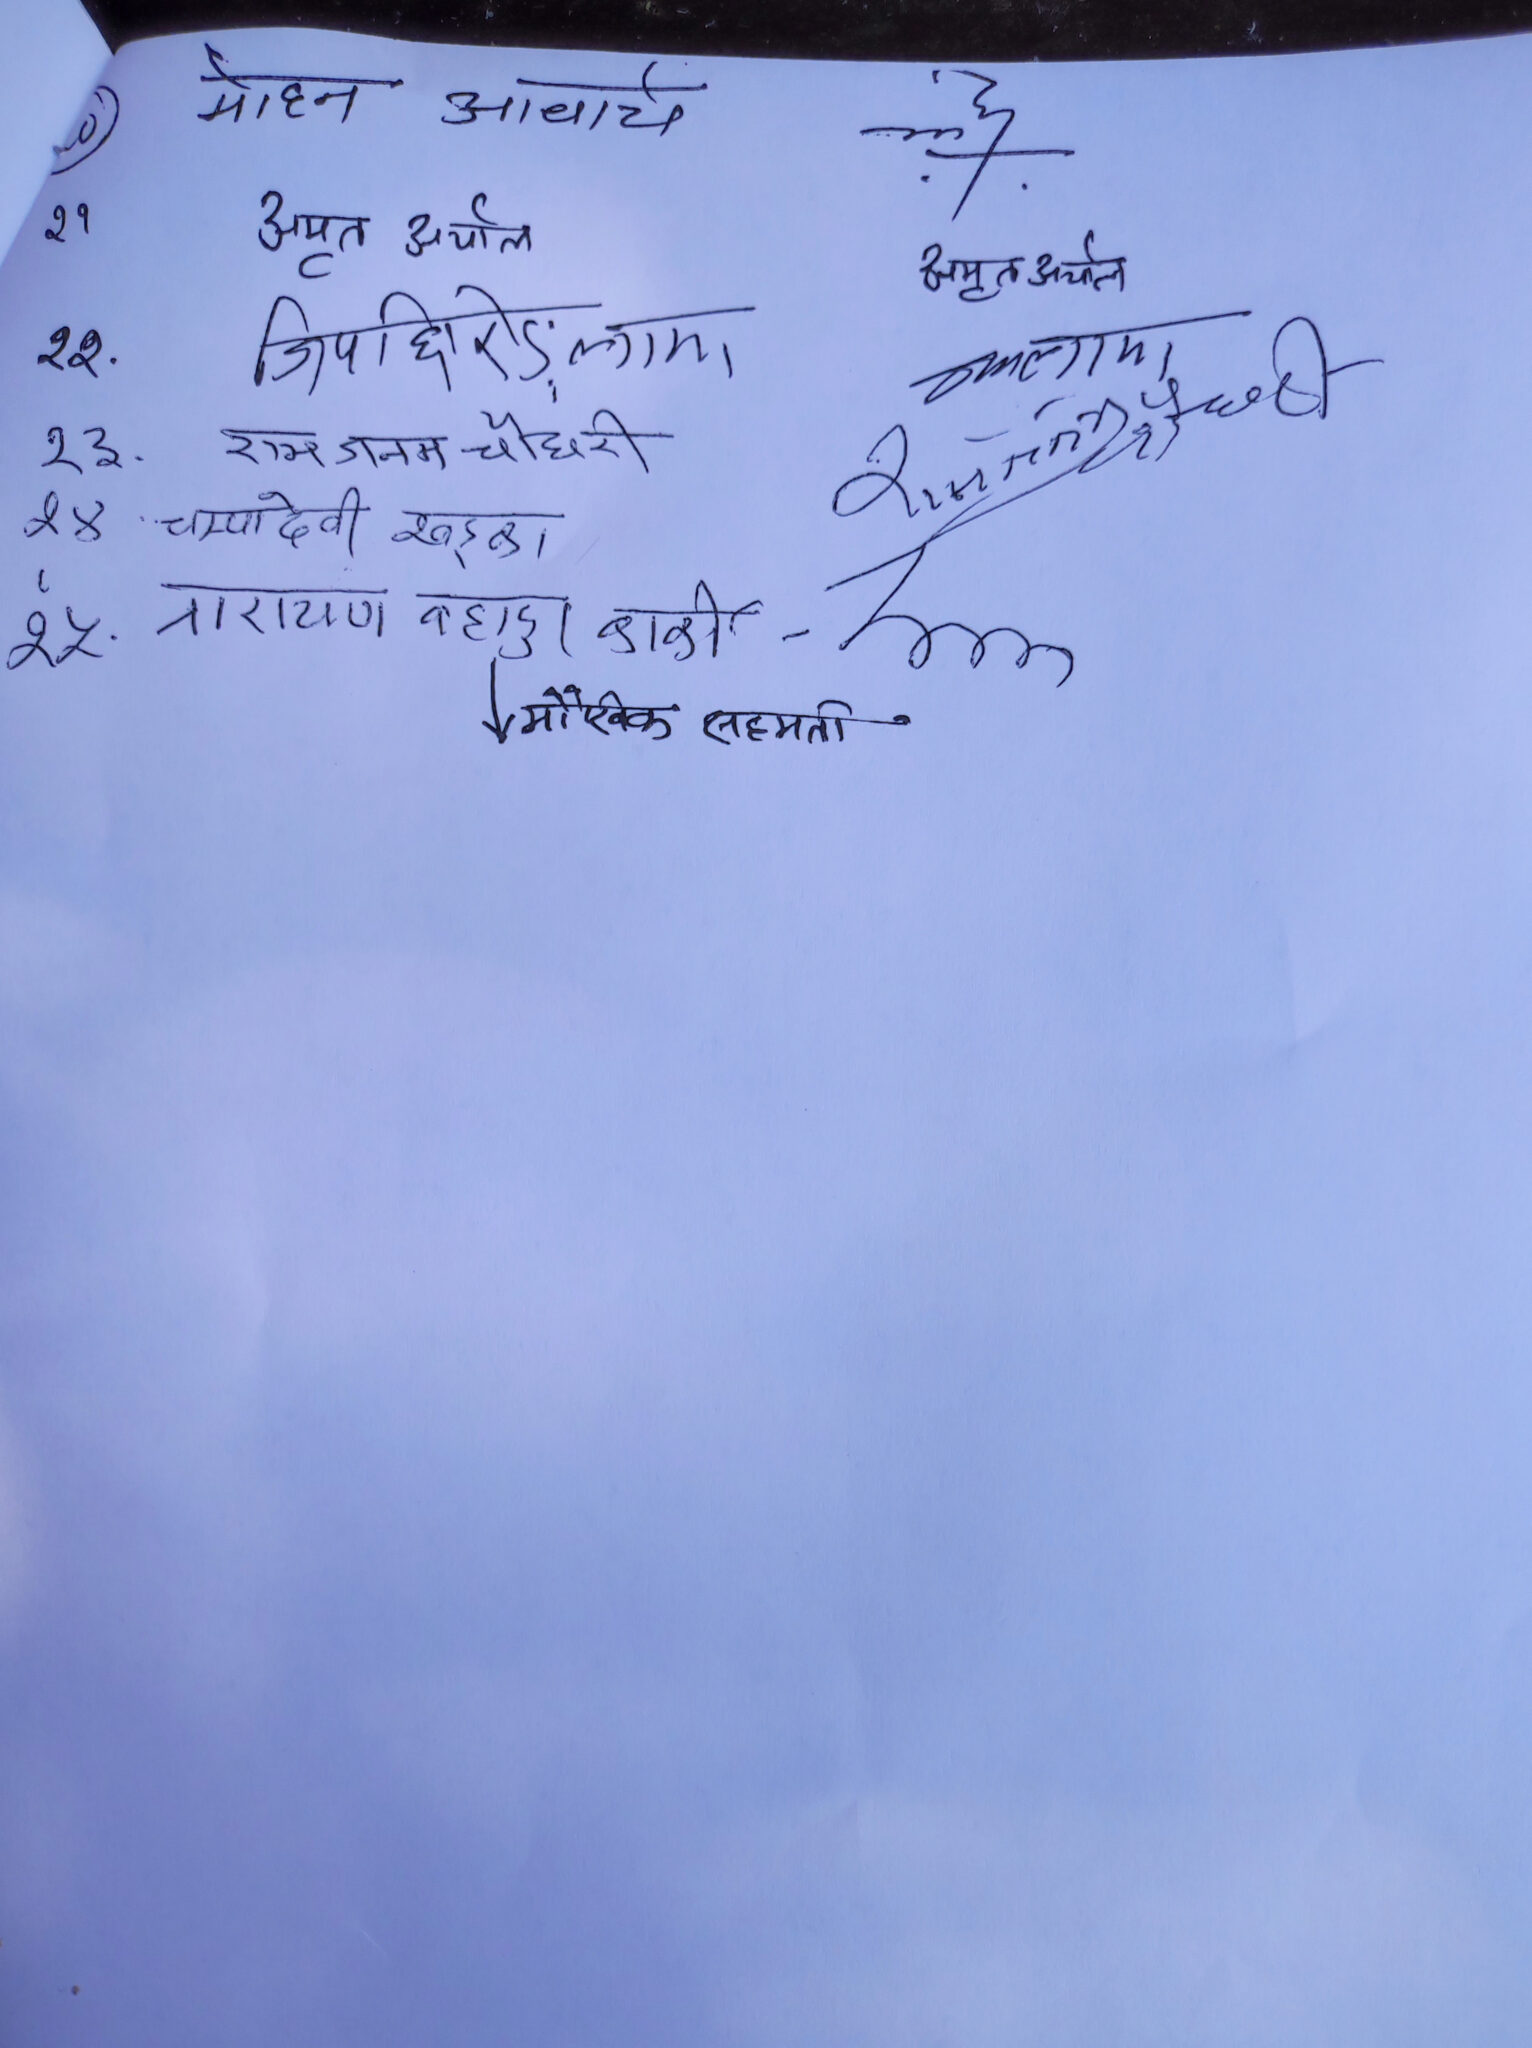 मोहन आचार्य
२१ अमृत अर्याल अमृत अर्याल
२२. लामा
२३. रामजनम चौधरी
२४ चम्पादेवी खड्का
२५. नारायण बहादुर कार्की -
↓ मौखिक सहमती